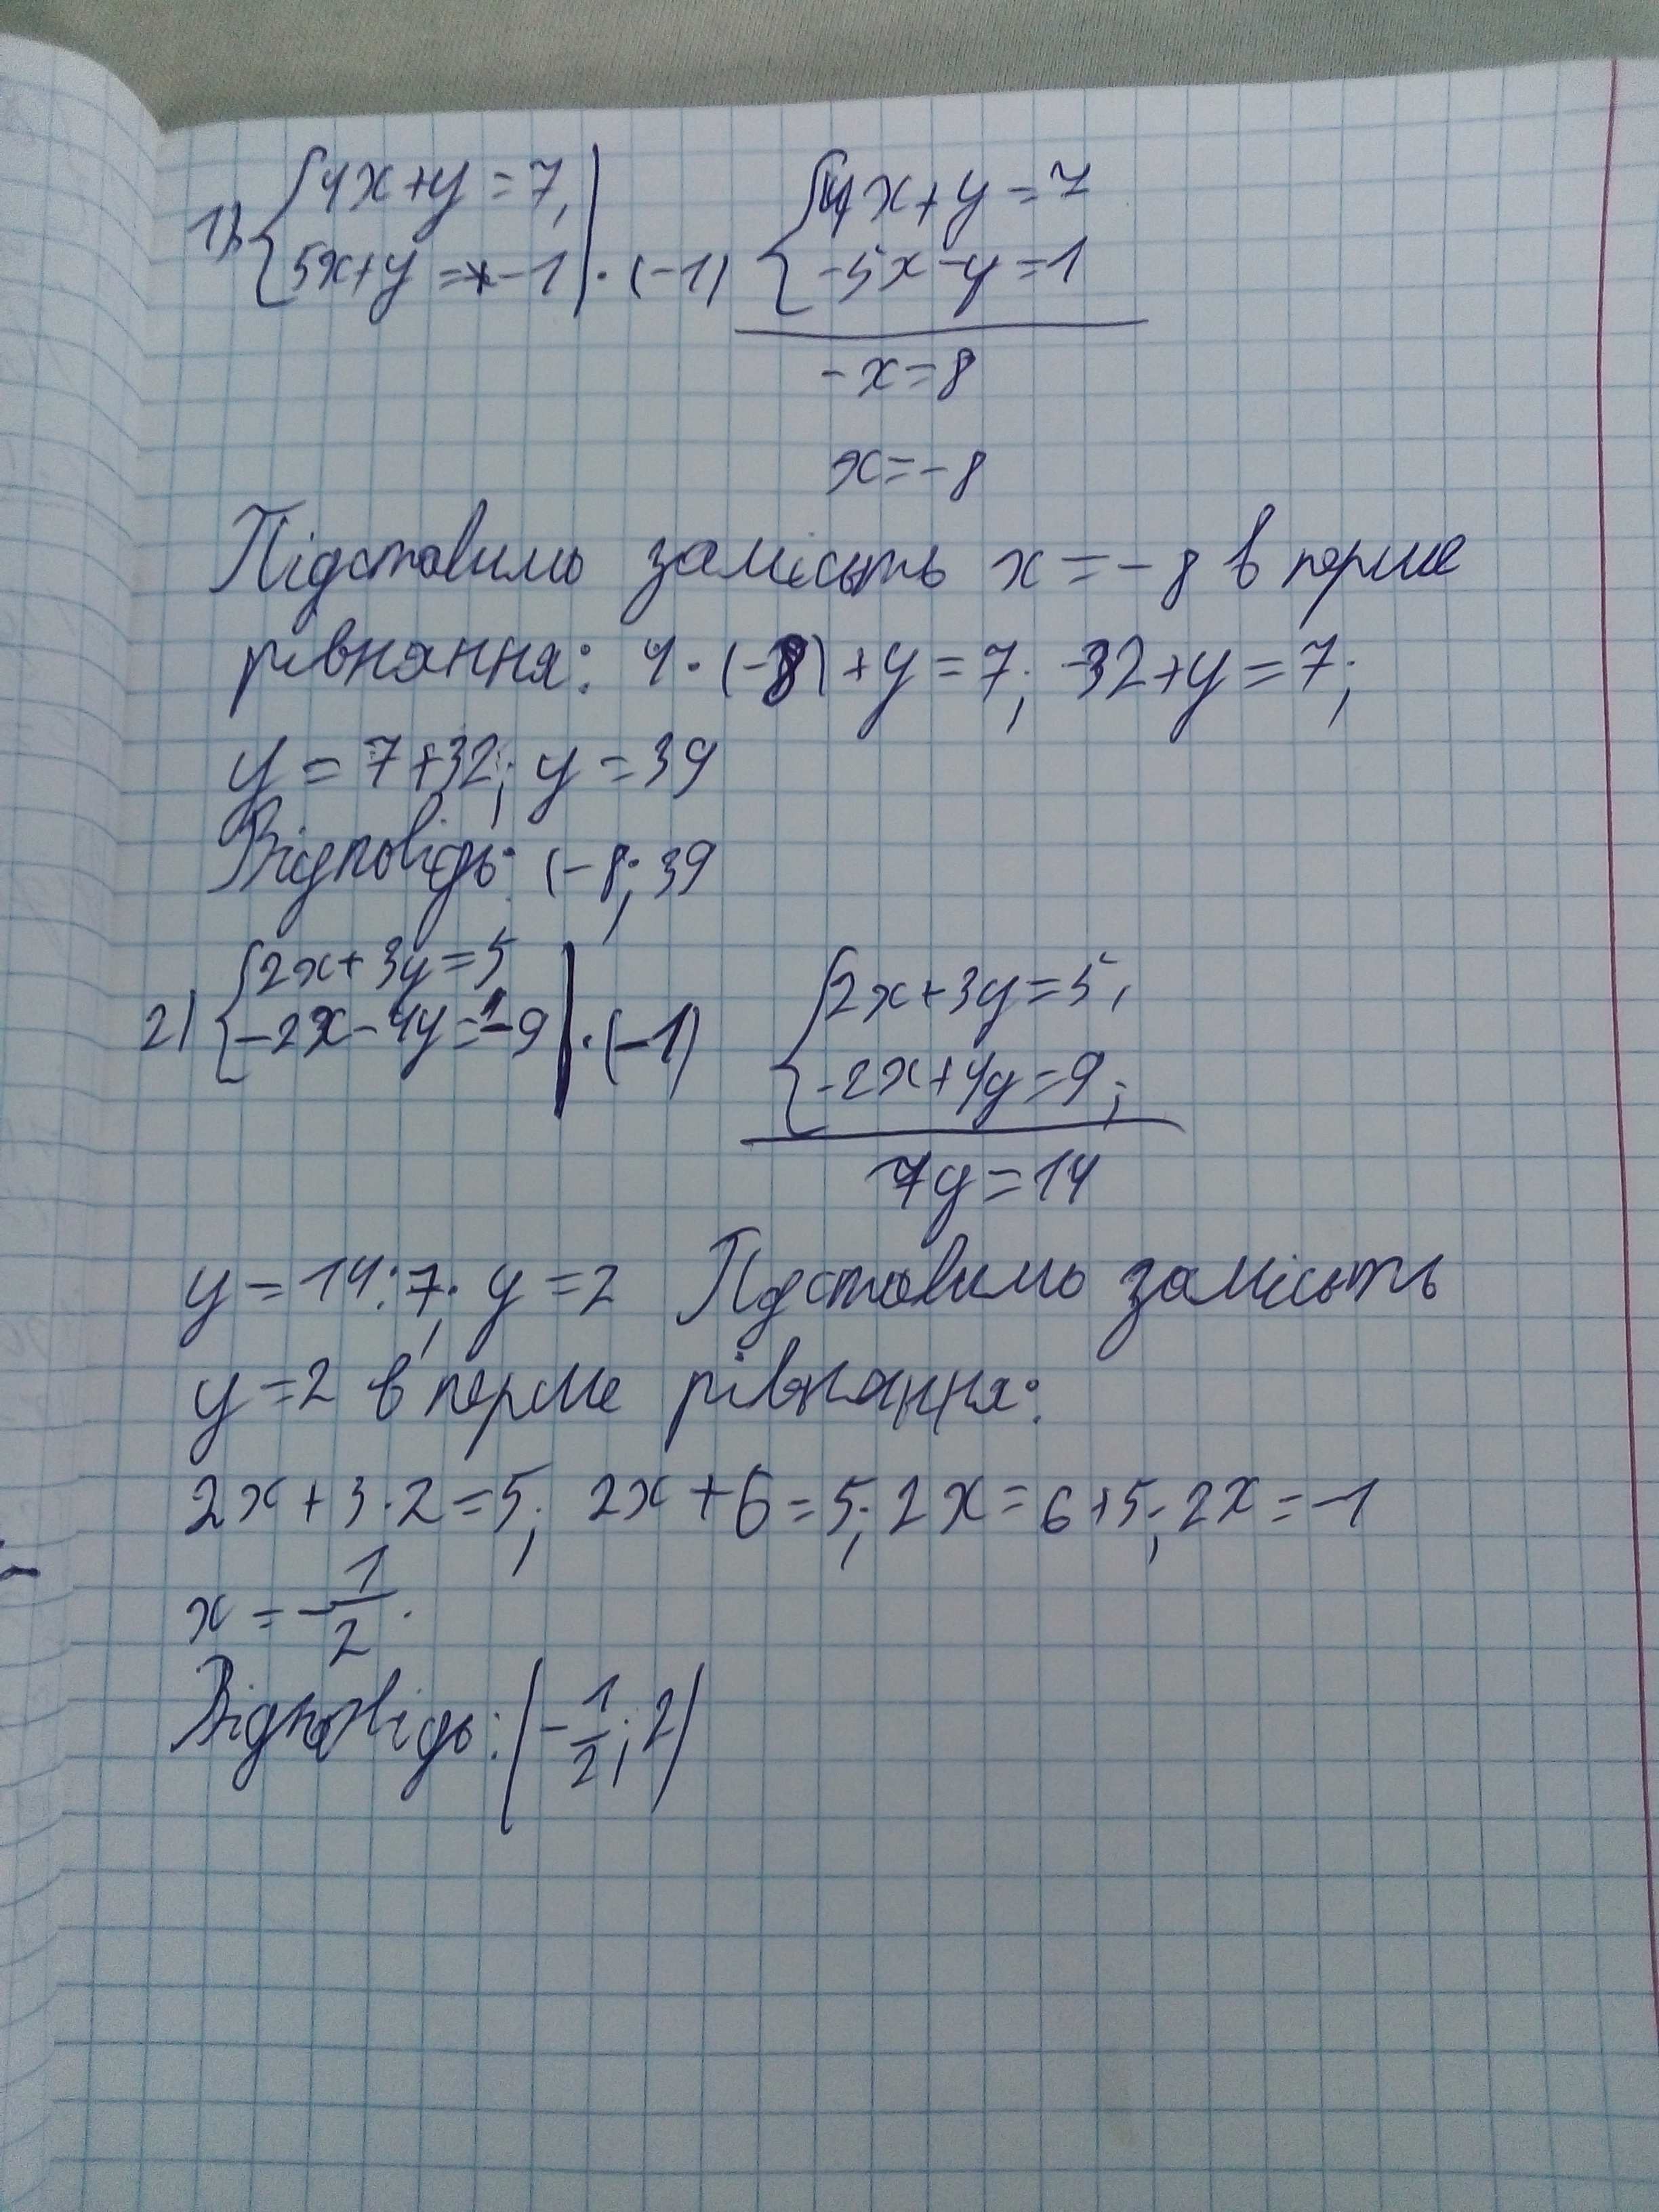 1) {4x+y=7, | {4x+y=7
5x+y=-1 | ·(-1) -5x-y=1
-x=8
x=-8
Підставимо замість x=-8 в перше
рівняння: 4·(-8)+y=7; -32+y=7;
y=7+32; y=39
Відповідь: (-8; 39
2) {2x+3y=5 | {2x+3y=5,
-2x-4y=-9 | ·(-1) -2x+4y=9;
7y=14
y=14:7; y=2 Підставимо замість
y=2 в перше рівняння:
2x+3·2=5; 2x+6=5; 2x=6+5; 2x=-1
x=-1/2.
Відповідь: (-1/2; 2)